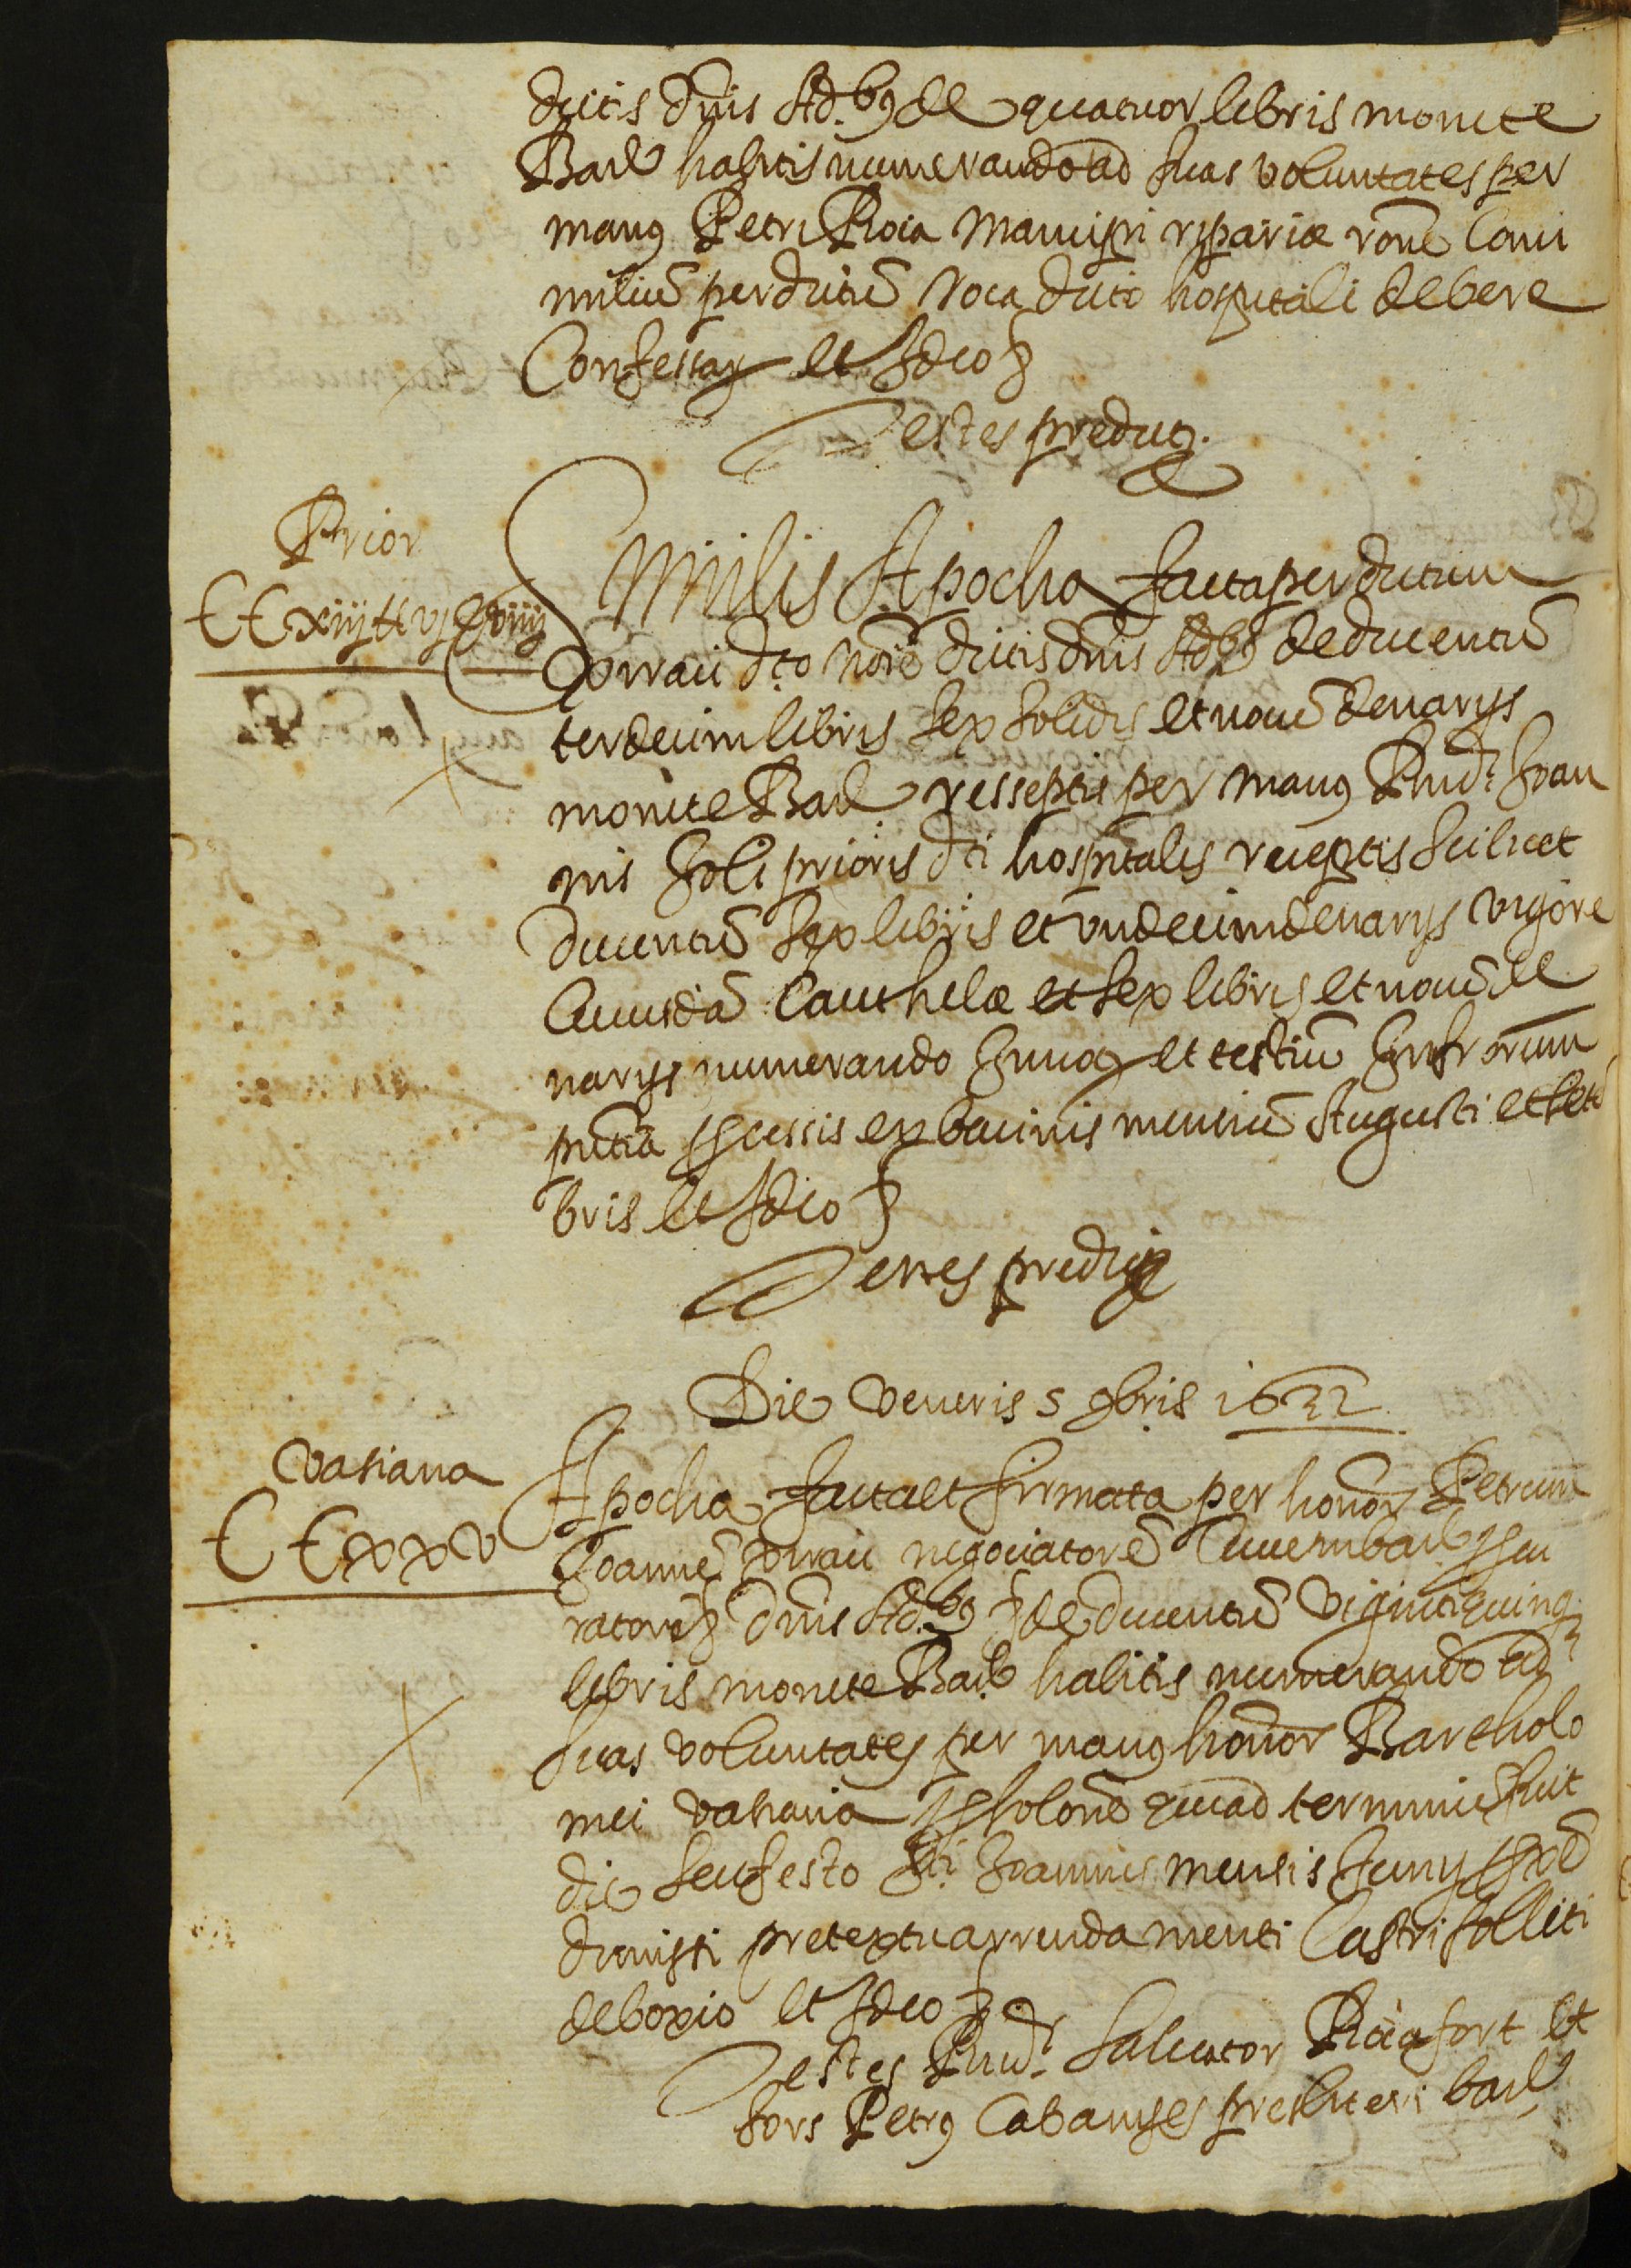 dictis dnis Ad.b9 de quatuor libris monete
Barl habitis numerando ad suas voluntates per
manus Petri Roca mancipii ripariæ rone Cam
miliũ perdictũ Roca dicto hospitali debere
Confessaz et Ideo &
Testes predicti.
Prior
CCxiij ll vj s viiij
Similis Apocha facta per dictum
Xorrau dco noie dictis dnis Adb9 de ducentũ
terdecim libris sex solidis et novẽ denarijs
monete Barl resseptis per manus Rnd: Joan
nis Soli prioris dti hospitalis receptis scilicet
ducentũ sex libris et undecim denarijs vigore
Cuiusdã Cauthelæ et sex libris et novẽ de
narijs numerando In mei et testiũ Infrorum
pntia processis ex bacinis mensiũ Augusti et setẽ
bris et Ideo &
Testes predicti
Die veneris 5 9bris 1632
vasiana
CCxxv
Apocha facta et firmata per honor Petrum
Joannẽ Xorrau negociatorẽ Civem barl procu
ratorẽ & dnis Ad.b9 & de ducentũ viginti quinq
libris monete Barl habitis numerando ad
suas voluntates per manus honor Bartholo
mei vasiana pro solone quad terminii fuit
die seu festo Sti: Joannis mensis Junij prox
dimisti pretextu arrendamenti Castri folliti
de boxio et Ideo &
Testes Rnd: Salvator Rocafort et
fors Petrus Cabanyes presbiteri barl